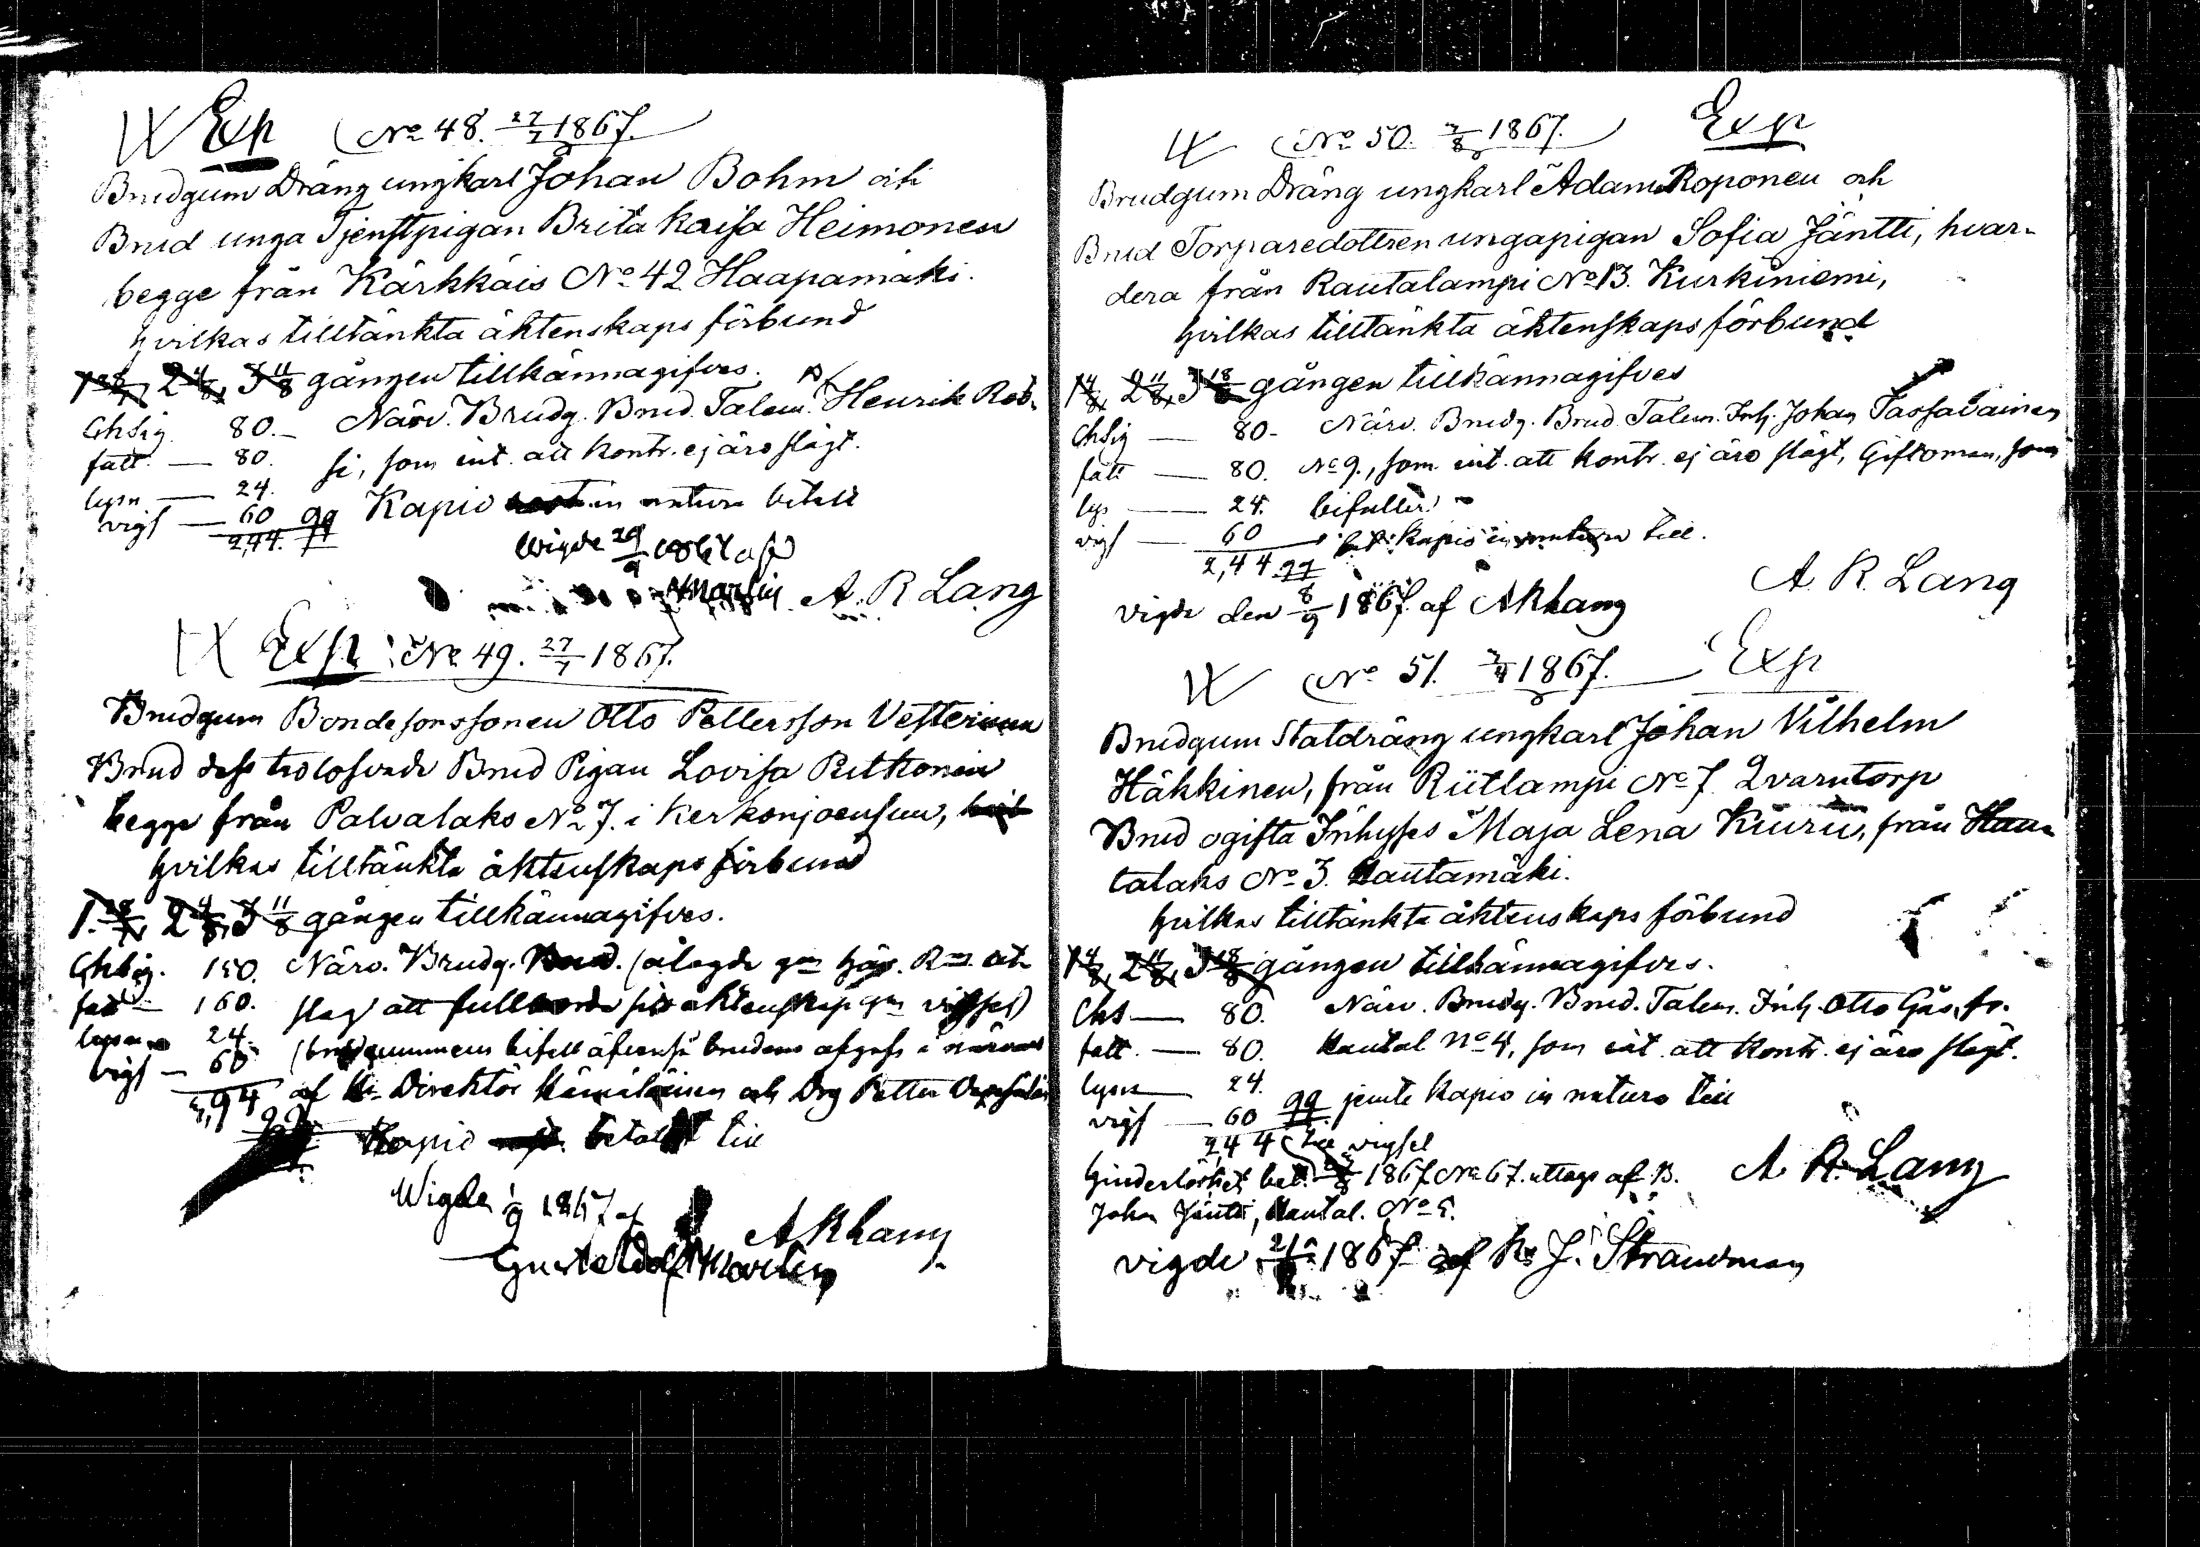 Exp No 48. 27/7 1867.
Brudgum Dräng ungkarl Johan Bohm och
Brud unga Tjenstpigan Brita Kaisa Heimonen
begge från Kärkkäis No 42 Haapamäki.
hvilkas tilltänkta äktenskaps förbund
1 28/7, 2 4/8, 3 11/8 gången tillkännagifves.
Närv. Brudg. Brud. Talem. Henrik Rob-
Chsig 80.-
fatt. — 80. si, som int. att kontr. ej äro slägt.
lysn — 24.
vigs — 60 Kapio in natura betalt
2,44.
Wigde 29/9 1867 af
Martin A. R Lang
Exp No 49. 27/7 1867.
Brudgum Bondesonssonen Otto Pettersson Vesterinen
Brud dess trolofvade Brud Pigan Lovisa Ritkonen
begge från Palvalaks No 7. i Kerkonjoensuu,
hvilkas tilltänkta äktenskaps förbund
1. 28/7, 2 4/8, 3 11/8 gången tillkännagifves.
Chsig. 150. Närv. Brudg. Brud. (ålagde
fatt — 160. slag att
lysn 24.
vigs — 60 bifall äfvenså brudens afgafs i närvaro
4,94 af Direktör Hämäläinen och Drg Petter
Kapio betalt till
Wigde 1/9 1867 af
A R Lang
Gustaf Adolf Martin
No 50. 3/8 1867. Exp
Brudgum Dräng ungkarl Adam Roponen och
Brud Torparedottren ungapigan Sofia Jäntti, hvar-
dera från Rautalampi No 13. Kurkiniemi,
hvilkas tilltänkta äktenskaps förbund
1 4/8, 2 11/8, 3 18/8 gången tillkännagifves
Chsig — 80- Närv. Brudg. Brud. Talem. Inh. Johan Tassavainen
fatt — 80. No 9., som int. att kontr. ej äro slägt, Giftoman, som
lys — 24. bifaller.
vigs — 60 kapio in natura till.
2,44
A. R. Lang
vigde den 8/9 1867. af A R Lang
No 51. 3/8 1867. Exp
Brudgum Statdräng ungkarl Johan Vilhelm
Häkkinen, från Riitlampi No 7. Qvarntorp
Brud ogifta Inhyses Maja Lena Kiuru, från Hau-
talaks No 3. Rautamäki.
hvilkas tilltänkta äktenskaps förbund
1 4/8, 2 11/8, 3 18/8 gången tillkännagifves.
Chs — 80. Närv. Brudg. Brud. Talem. Inh. Otto Gås, fr.
fatt. — 80. Hautal No 4, som int. att kontr. ej äro slägt.
lysn — 24.
vigs — 60 jemte kapio in natura till
2,44 till vigsel
Hinderlöshet bet. 1867 No 67. uttage af B. A. R. Lang
Johan Jäntti, Hautal. No 5.
vigde 1867 af J. Strandman